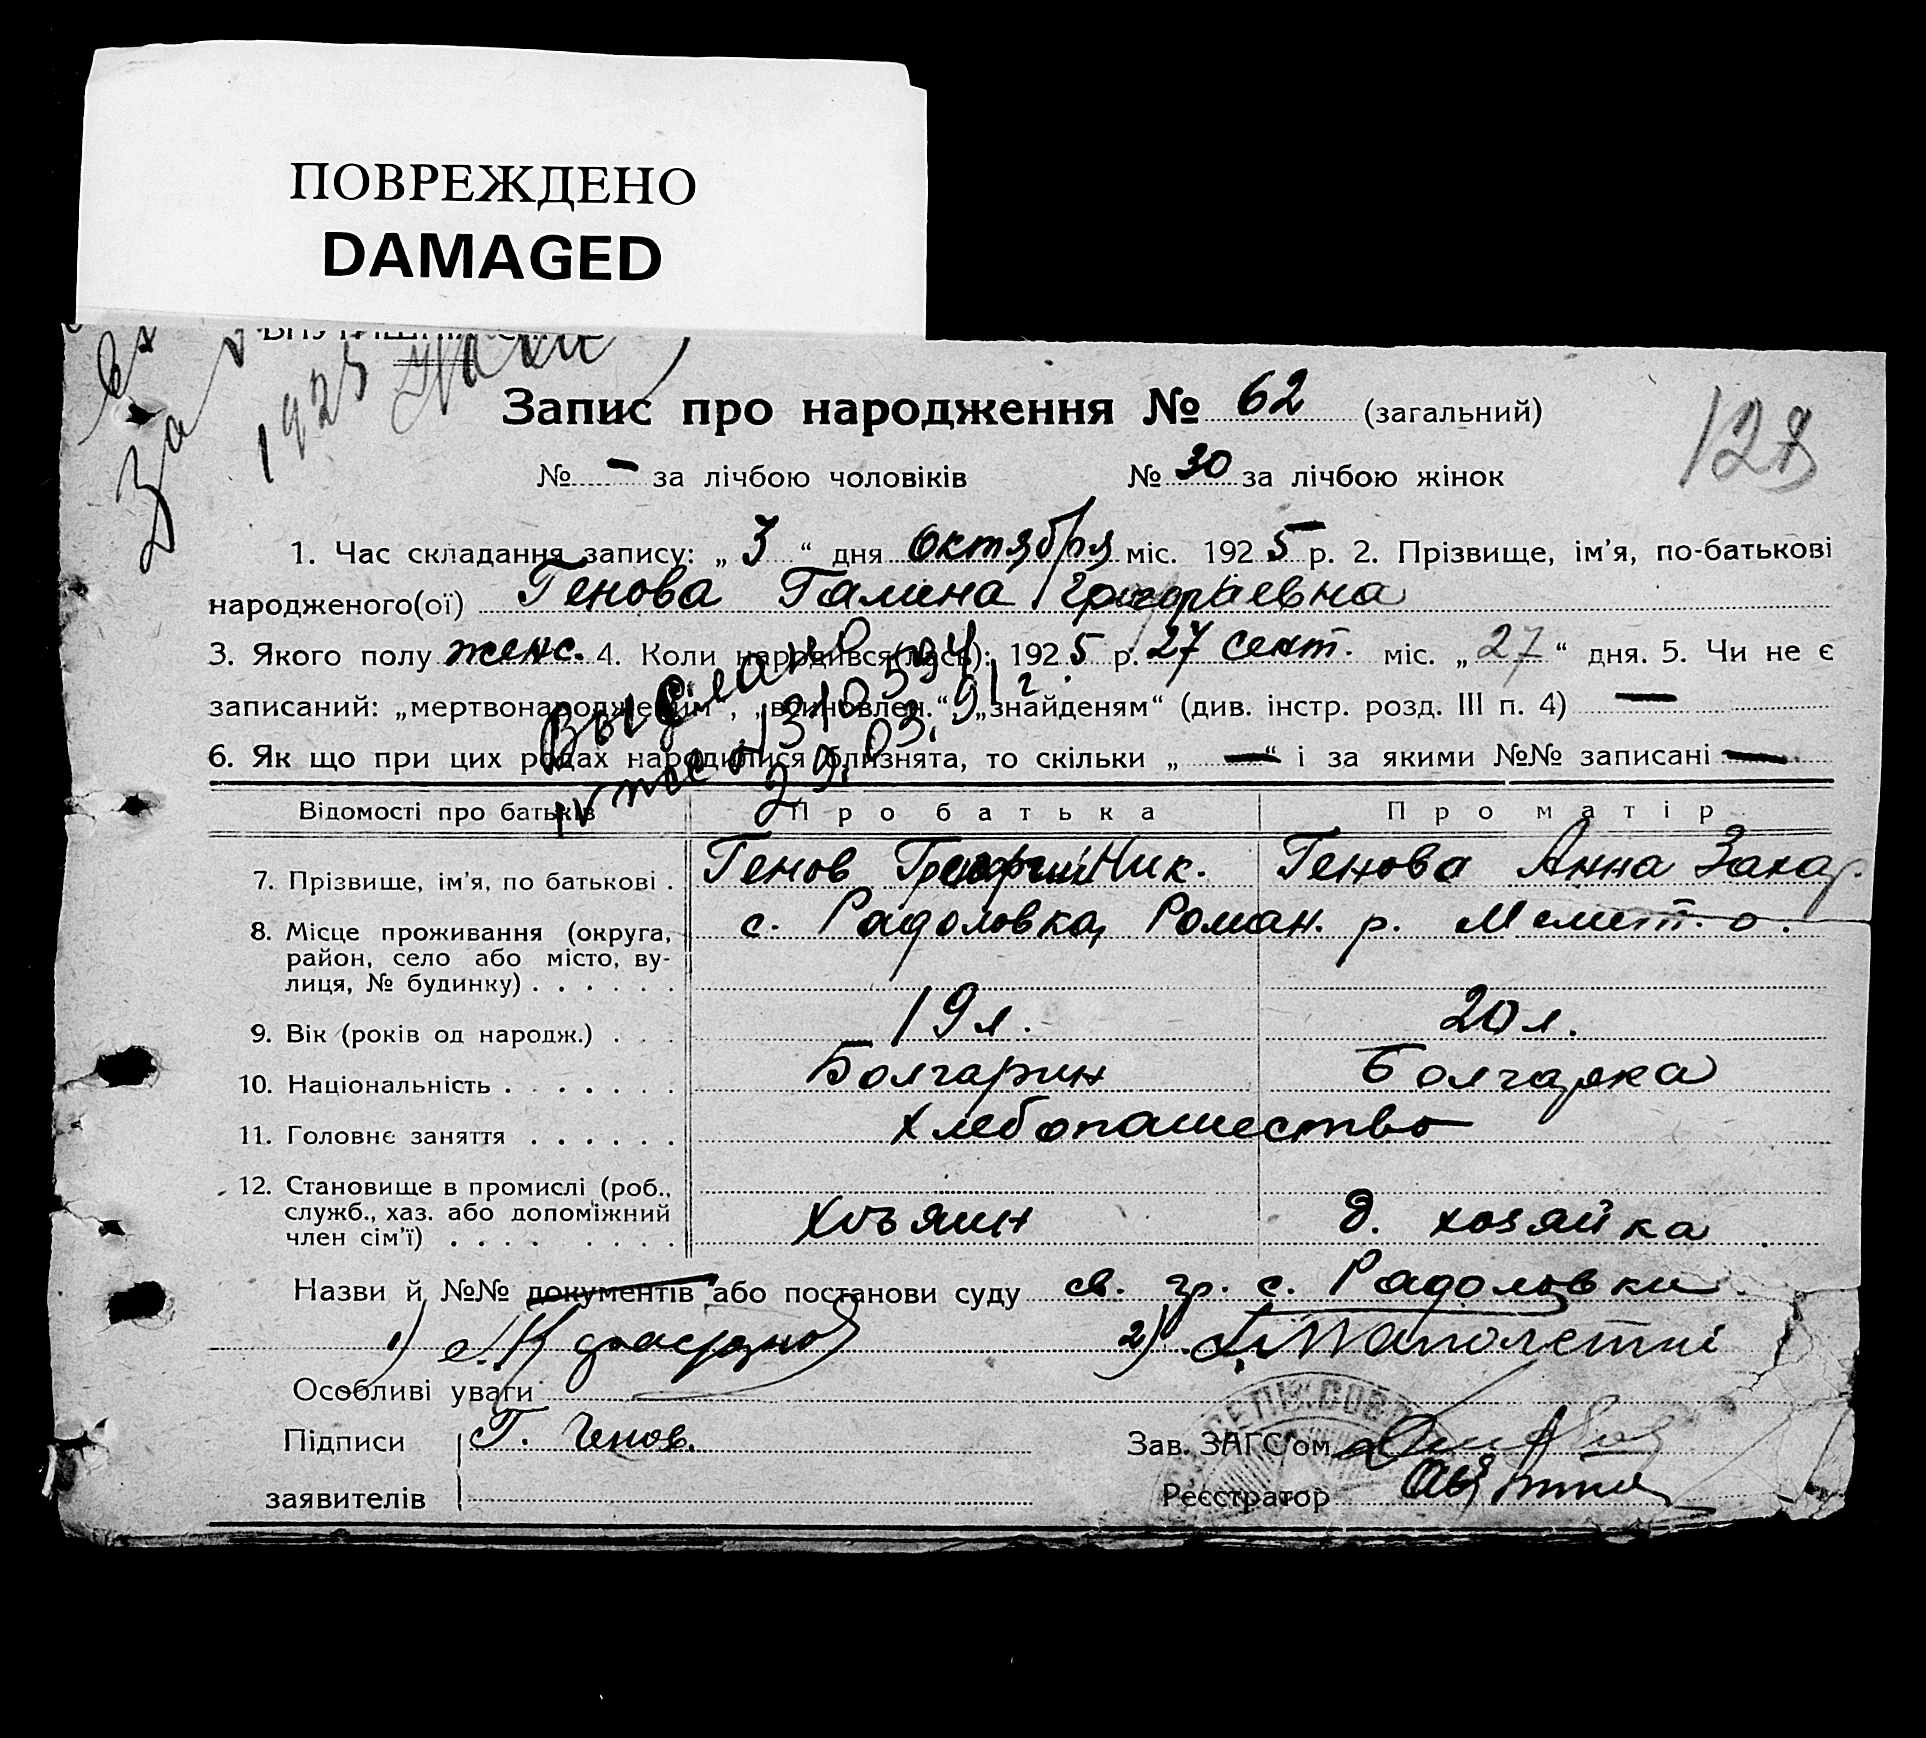 ПОВРЕЖДЕНО
DAMAGED
1925
За
Запис про народження № 62 (загальний)
128
№ – за лічбою чоловіків № 30 за лічбою жінок
1. Час складання запису: „ 3 “ дня октября міс. 1925 р. 2. Прізвище, ім’я, по-батькові
народженого(ої) Генова Галина
3. Якого полу женс. 4. Коли народився(лась): 1925 р. 27 сент. міс. „ 27 “ дня. 5. Чи не є
записаний: „мертвонародженим“, „всиновлен.“ „знайденям“ (див. інстр. розд. III п. 4) —
6. Як що при цих родах народилися близнята, то скільки „ — “ і за якими №№ записані —
Выслано
29.03.91 г.
Відомості про батьків Про батька Про матір
7. Прізвище, ім’я, по батькові . Генов Георгий Ник. Генова Анна Захар.
8. Місце проживання (округа, с. Радоловка, Роман. р. Мелит. о.
район, село або місто, ву-
лиця, № будинку) . . . . . .
9. Вік (років од народж.) . . . 19 л. 20 л.
10. Національність . . . . . . . Болгарин Болгарка
11. Головнє заняття . . . . . . Хлебопашество
12. Становище в промислі (роб.,
служб., хаз. або допоміжний хозяин д. хозяйка
член сім’ї) . . . . . . . .
Назви й №№ документів або постанови суду св. гр. с. Радоловки
1) 2)
Особливі уваги
Підписи Г. Генов. Зав. ЗАГС’ом
заявителів Реєстратор